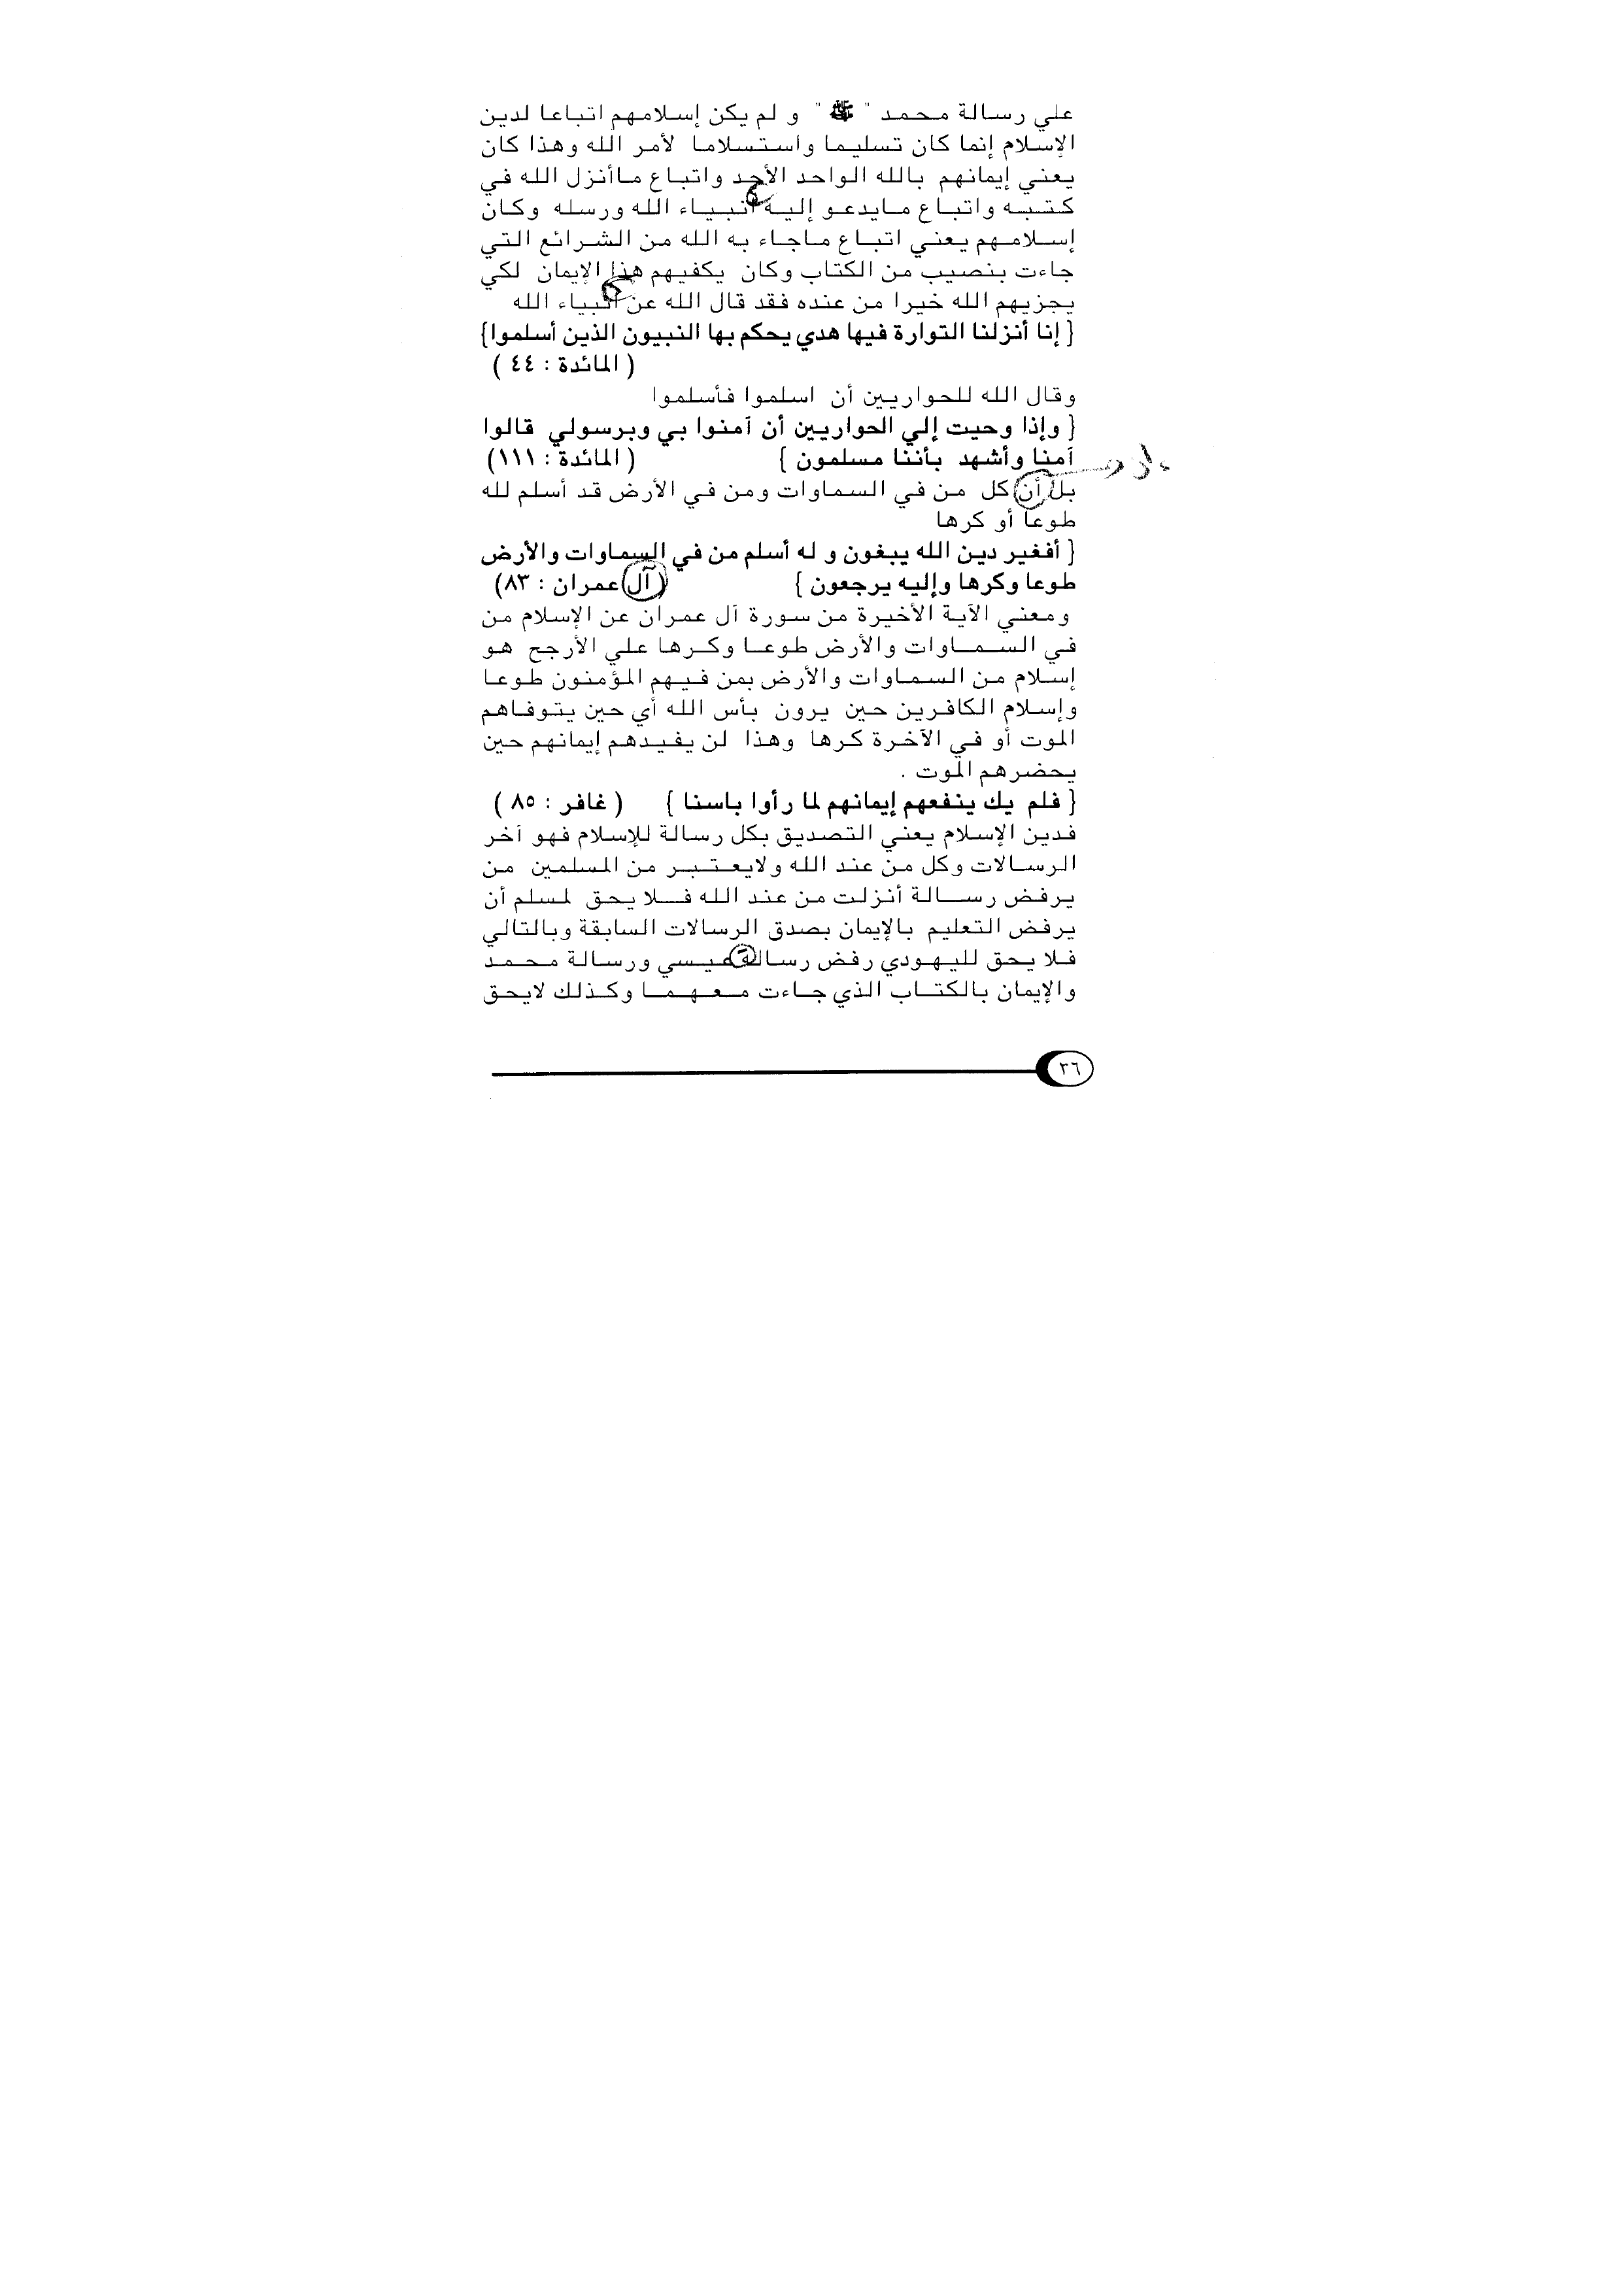 علي رسالة محمد " ﷺ " و لم يكن إسلامهم اتباعا لدين
الإسلام إنما كان تسليما واستسلاما لأمر الله وهذا كان
يعني إيمانهم بالله الواحد الأحد واتباع ماأنزل الله في
كتبه واتباع مايدعو إلية أنبياء الله ورسله وكان
إسلامهم يعني اتباع ماجاء به الله من الشرائع التي
جاءت بنصيب من الكتاب وكان يكفيهم هذا الإيمان لكي
يجزيهم الله خيرا من عنده فقد قال الله عن أنبياء الله
{ إنا أنزلنا التوارة فيها هدي يحكم بها النبيون الذين أسلموا}
( المائدة : ٤٤ )
وقال الله للحواريين أن اسلموا فأسلموا
{ وإذا وحيت إلي الحواريين أن آمنوا بي وبرسولي قالوا
آمنا وأشهد بأننا مسلمون } ( المائدة : ١١١)
بل أن كل من في السماوات ومن في الأرض قد أسلم لله
طوعا أو كرها
{ أفغير دين الله يبغون و له أسلم من في السماوات والأرض
طوعا وكرها وإليه يرجعون } ( آل عمران : ٨٣)
ومعني الآية الأخيرة من سورة آل عمران عن الإسلام من
في السماوات والأرض طوعا وكرها علي الأرجح هو
إسلام من السماوات والأرض بمن فيهم المؤمنون طوعا
وإسلام الكافرين حين يرون بأس الله أي حين يتوفاهم
الموت أو في الآخرة كرها وهذا لن يفيدهم إيمانهم حين
يحضرهم الموت .
{ فلم يك ينفعهم إيمانهم لما رأوا باسنا } ( غافر : ٨٥ )
فدين الإسلام يعني التصديق بكل رسالة للإسلام فهو آخر
الرسالات وكل من عند الله ولايعتبر من المسلمين من
يرفض رسالة أنزلت من عند الله فلا يحق لمسلم أن
يرفض التعليم بالإيمان بصدق الرسالات السابقة وبالتالي
فلا يحق لليهودي رفض رسالة عيسي ورسالة محمد
والإيمان بالكتاب الذي جاءت معهما وكذلك لايحق
٣٦